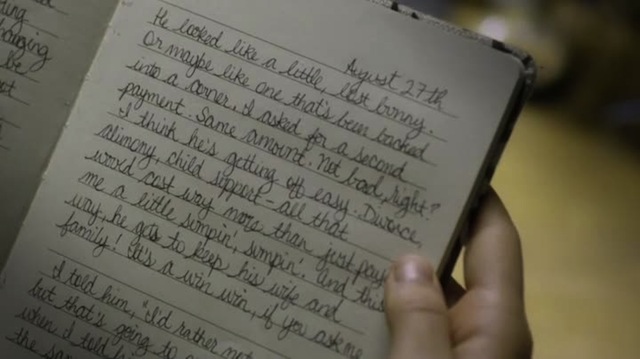 ting
changing
be
not
August 27th
He looked like a little, lost bunny.
Or maybe like one that's been backed
into a corner. I asked for a second
payment. Same amount. Not bad, right?
I think he's getting off easy. Divorce,
alimony, child support - all that
would cost way more than just pay
me a little sumpin', sumpin'. And this
way, he gets to keep his wife and
family! It's a win win, if you ask me
I told him, "I'd rather not
but that's going to
when I told
the same